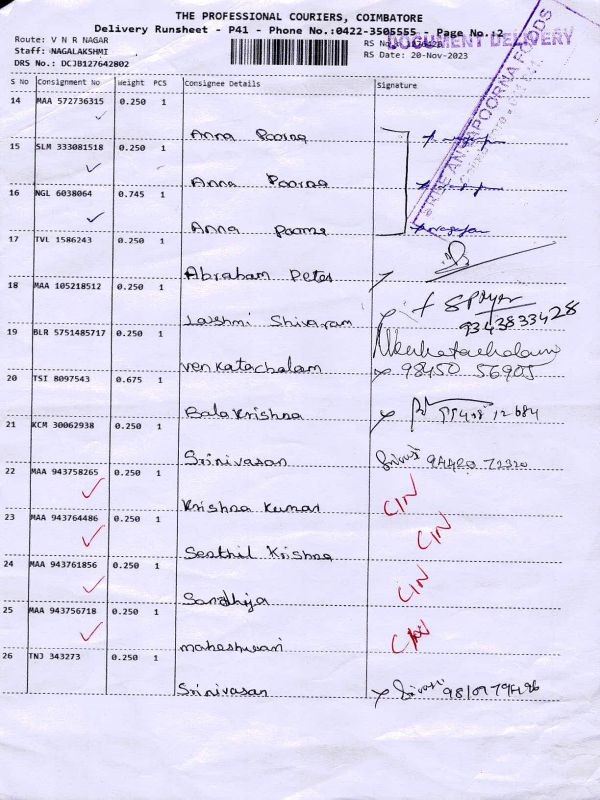 THE PROFESSIONAL COURIERS, COIMBATORE
Delivery Runsheet - P41 - Phone No.:0422-3505555 Page No.:2
Route: V N R NAGAR
DOCUMENT DELIVERY
Staff: NAGALAKSHMI RS No
DRS No.: DCJB127642802 RS Date: 20-Nov-2023
S No Consignment No Weight PCS Consignee Details Signature
14 MAA 572736315 0.250 1
Anna Poorna
15 SLM 333081518 0.250 1
Anna Poorna
16 NGL 6038064 0.745 1
Anna Poorna
17 TVL 1586243 0.250 1
Abraham Peter
18 MAA 105218512 0.250 1
Lakshmi Shivaram
9343833428
19 BLR 5751485717 0.250 1
Venkatachalam Venkatachalam
98450 56905
20 TSI 8097543 0.675 1
Bala Krishna
21 KCM 30062938 0.250 1
Srinivasan 94420 72320
22 MAA 943758265 0.250 1
Krishna Kumar CIN
23 MAA 943764486 0.250 1
Senthil Krishna CIN
24 MAA 943761856 0.250 1
Sandhija CIN
25 MAA 943756718 0.250 1
maheshwari
26 TNJ 343273 0.250 1
Srinivasan
SHREE ANNAPOORNA FOODS